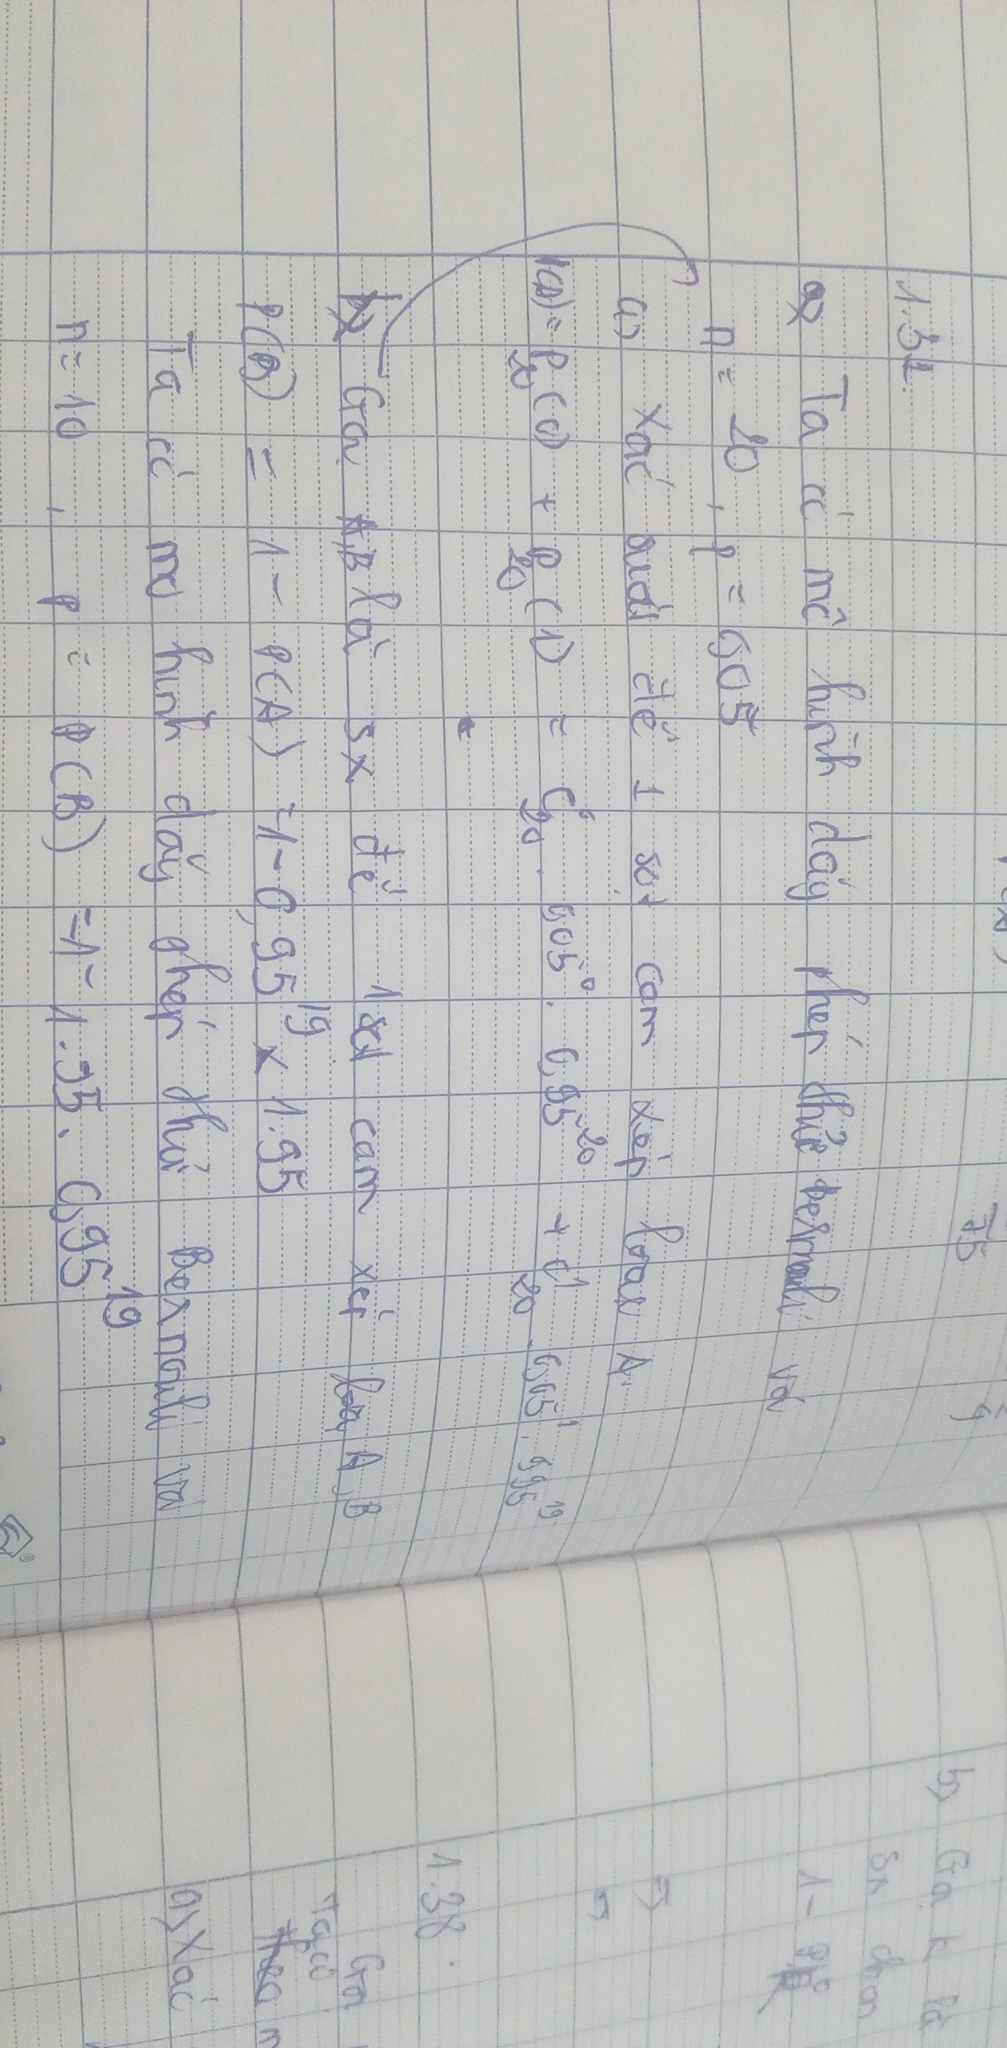 75
1.31.
a) Ta có mô hình dãy phép thử bernouli với
n = 20, p = 0,05
a) Xác suất để 1 sọt cam xếp loại A.
P(A) = P₂₀(0) + P₂₀(1) = C⁰₂₀ . 0,05⁰ . 0,95²⁰ + C¹₂₀ . 0,05¹ . 0,95¹⁹
b) Gọi A,B là sx để 1 sọt cam xếp loại A, B
P(B) = 1 - P(A) = 1 - 0,95¹⁹ x 1.95
Ta có mô hình dãy phép thử Bernouli với
n = 10, p = P(B) = 1 - 1.95. 0,95¹⁹
b) Gọi k là
sx chọn
1 -
⇒
⇒
1.38.
Gọi
Ta có
theo m
a) Xác